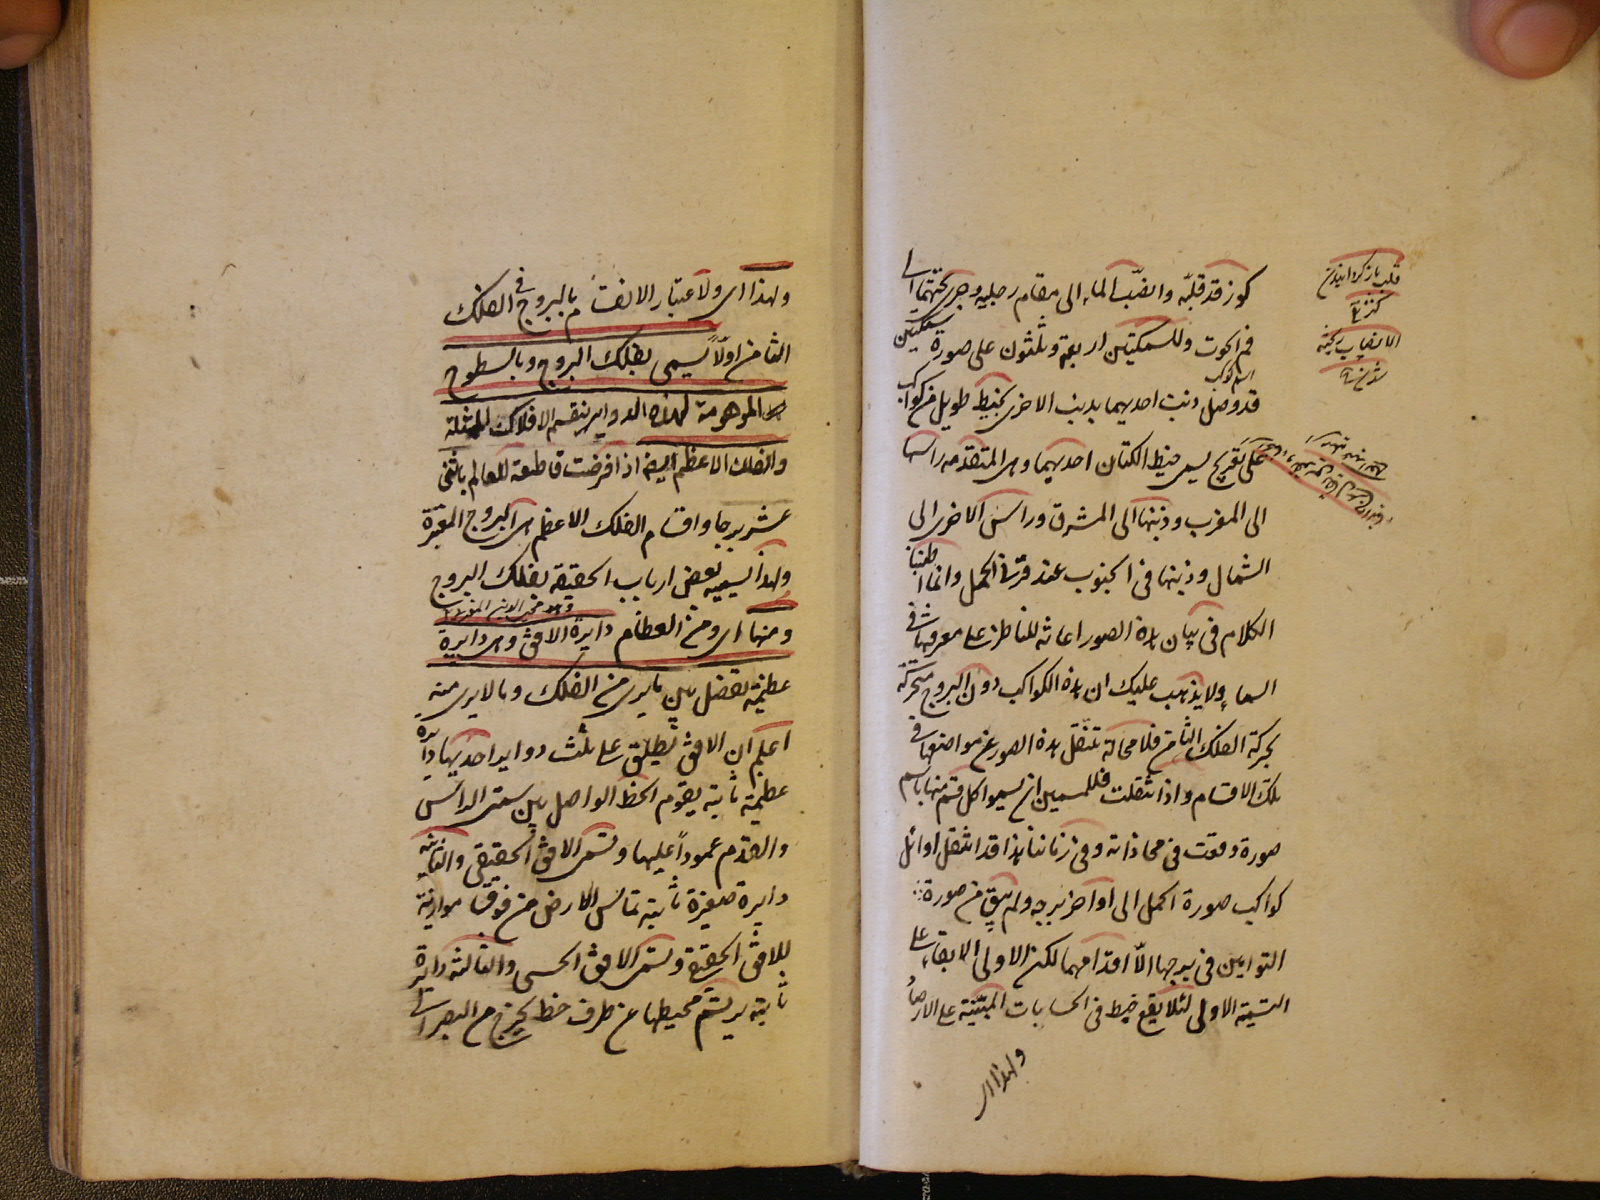 كوز قد قلبه وانصب الماء الى مقام رجليه وجرى تحتهما الى
فم الحوت وللسمكتين اربعة وثلثون على صورة سمكتين
قد وصل ذنب احديهما بذنب الاخرى بخيط طويل من كواكب
على تعريج يسمى خيط الكتان احديهما وهى المتقدمة راسها
الى المغرب وذنبها الى المشرق وراس الاخرى الى
الشمال وذنبها فى الجنوب عند قرنى الحمل وانما اطنبنا
الكلام فى بيان هذه الصور اعانة للناظرين على معرفتها فى
السماء ولا يذهب عليك ان هذه الكواكب دون البروج متحركة
بحركة الفلك الثامن فلا محالة تنتقل هذه الصور عن مواضعها فى
تلك الاقسام واذا انتقلت فللمسمين ان يسموا كل قسم منها باسم
صورة وقعت فى محاذاته وفى زماننا هذا قد انتقل اوائل
كواكب صورة الحمل الى اواخر برجه ولم يبق من صورة
التوامين فى برجها الا اقدامهما لكن الاولى الابقاء على
التسمية الاولى لئلا يقع خبط فى الحسابات المبتنية على الارصاد
ولهذا اى
قلب باز كردانيدن
كنز
الانصباب ريخته
شدن
اسم كوكب
ولهذا اى ولاعتبار الانقسام بالبروج فى الفلك
الثامن اولا يسمى بفلك البروج وبالسطوح
الموهومة لهذه الدواير ينقسم الافلاك الممثلة
والفلك الاعظم ايضا اذا فرضت قاطعة للعالم باثنى
عشر برجا واقسام الفلك الاعظم هى البروج المعتبرة
ولهذا يسميه بعض ارباب الحقيقة بفلك البروج
ومنها اى ومن العظام دايرة الافق وهى دايرة
عظيمة تفصل بين ما يرى من الفلك وما لا يرى منه
اعلم ان الافق يطلق على ثلث دواير احديها دايرة
عظيمة ثابتة يقوم الخط الواصل بين سمتى الراس
والقدم عمودا عليها وتسمى الافق الحقيقى والثانية
دايرة صغيرة ثابتة تماس الارض من فوق موازية
للافق الحقيقى وتسمى الافق الحسى والثالثة دايرة
ثابتة يرتسم محيطها من طرف خط يخرج من البصر الى